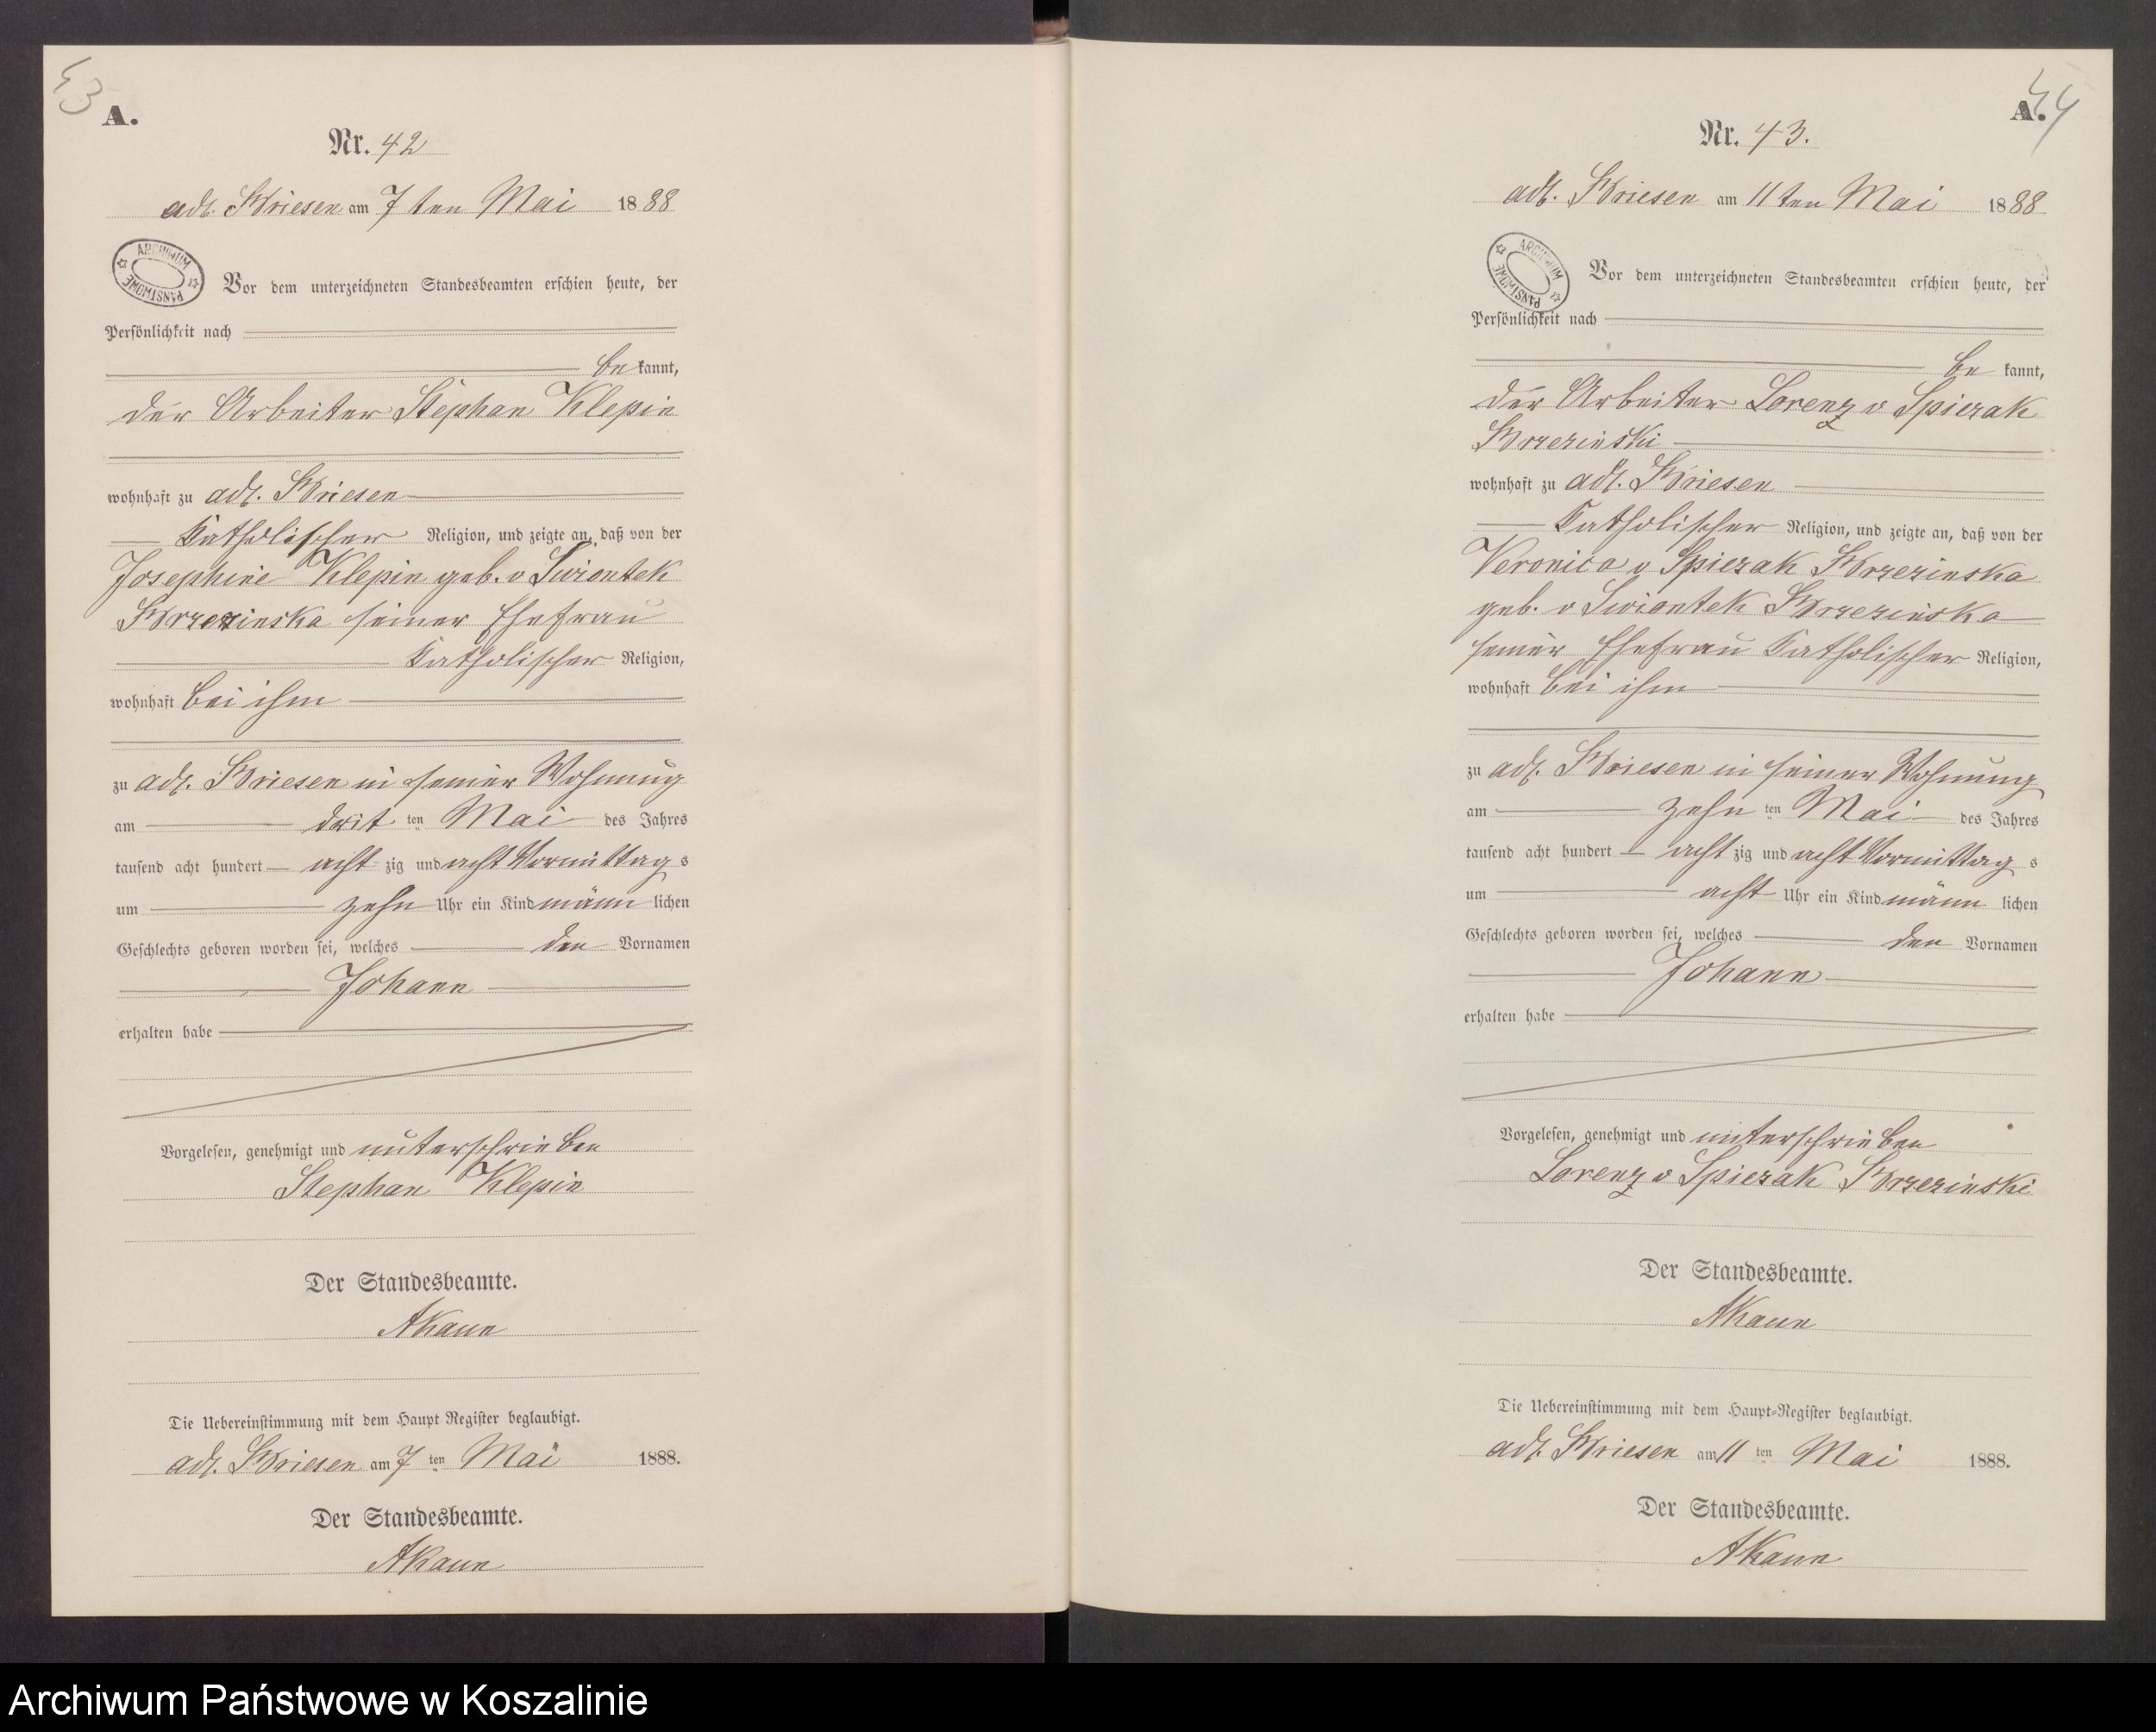 43
A.
Nr. 42
adl. Briesen am 7 ten Mai 1888
ARCHIWUM PAŃSTWOWE
Vor dem unterzeichneten Standesbeamten erschien heute, der
Persönlichkeit nach
be kannt,
der Arbeiter Stephan Klepin
wohnhaft zu adl. Briesen
katholischer Religion, und zeigte an, daß von der
Josephine Klepin geb. v Swiontek
Brzezinska seiner Ehefrau
katholischer Religion,
wohnhaft bei ihm
zu adl. Briesen in seiner Wohnung
am drit ten Mai des Jahres
tausend acht hundert acht zig und acht Vormittag s
um zehn Uhr ein Kind männ lichen
Geschlechts geboren worden sei, welches den Vornamen
Johann
erhalten habe
Vorgelesen, genehmigt und unterschrieben
Stephan Klepin
Der Standesbeamte.
Die Uebereinstimmung mit dem Haupt Register beglaubigt.
adl. Briesen am 7 ten Mai 1888.
Der Standesbeamte.
44
A.
Nr. 43.
adl. Briesen am 11 ten Mai 1888
ARCHIWUM PAŃSTWOWE
Vor dem unterzeichneten Standesbeamten erschien heute, der
Persönlichkeit nach
be kannt,
der Arbeiter Lorenz v Spiczak
Brzezinski
wohnhaft zu adl. Briesen
katholischer Religion, und zeigte an, daß von der
Veronica v Spiczak Brzezinska
geb. v Swiontek Brzezinska
seiner Ehefrau katholischer Religion,
wohnhaft bei ihm
zu adl. Briesen in seiner Wohnung
am zehn ten Mai des Jahres
tausend acht hundert acht zig und acht Vormittag s
um acht Uhr ein Kind männ lichen
Geschlechts geboren worden sei, welches den Vornamen
Johann
erhalten habe
Vorgelesen, genehmigt und unterschrieben
Lorenz v Spiczak Brzezinski
Der Standesbeamte.
Die Uebereinstimmung mit dem Haupt-Register beglaubigt.
adl. Briesen am 11 ten Mai 1888.
Der Standesbeamte.
Archiwum Państwowe w Koszalinie